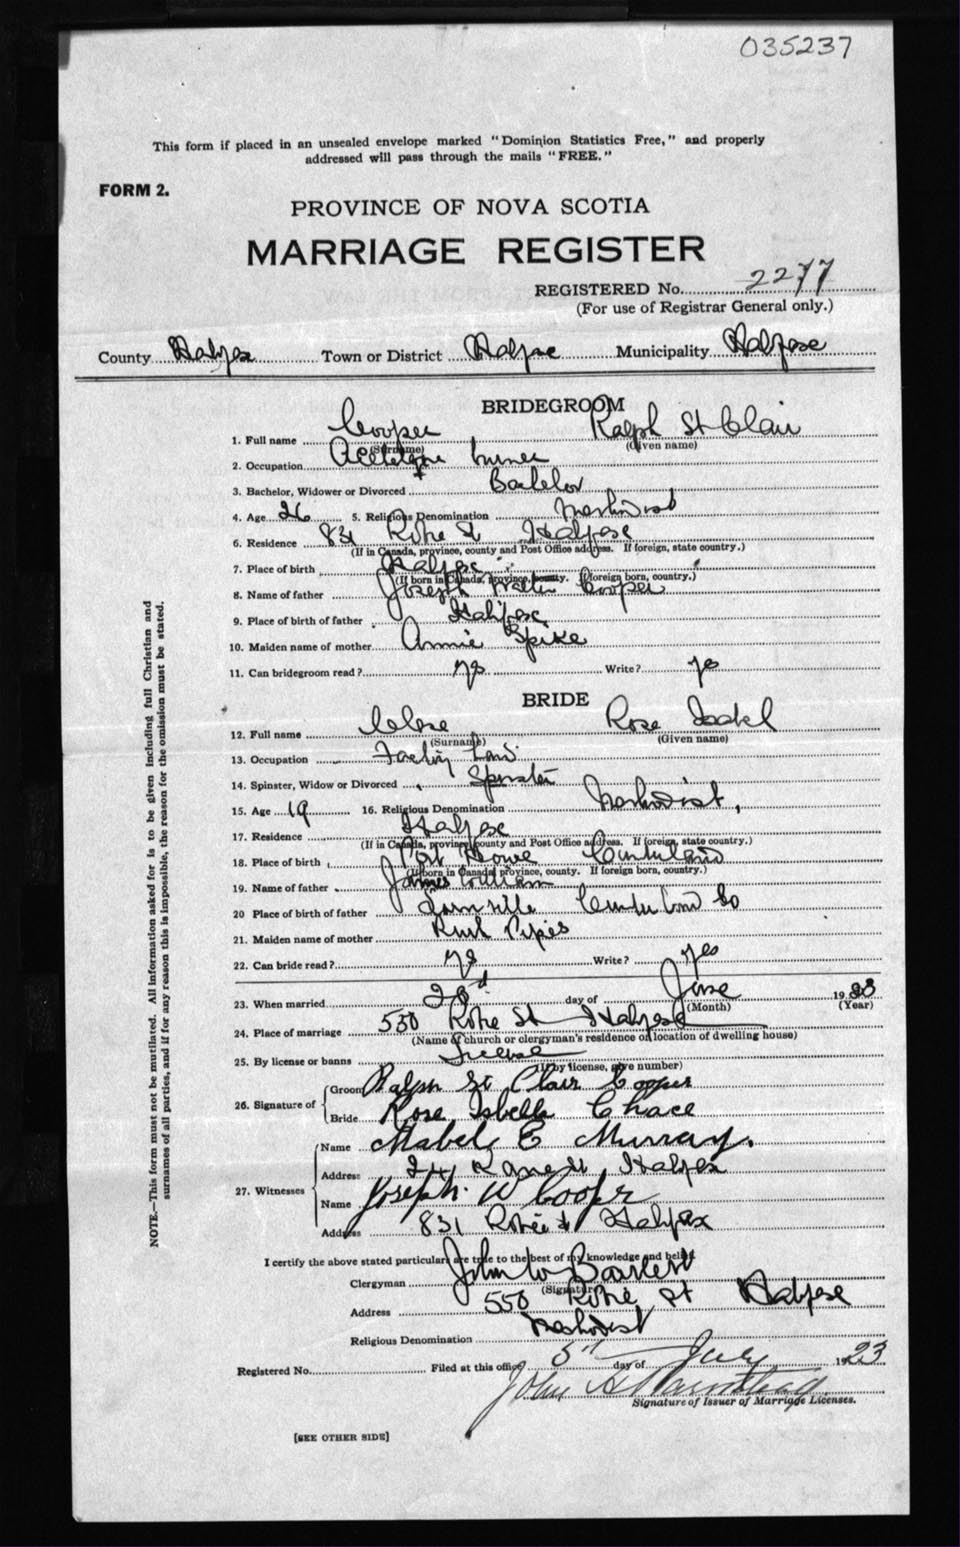 035237
This form if placed in an unsealed envelope marked "Dominion Statistics Free," and properly
addressed will pass through the mails "FREE."
FORM 2.
PROVINCE OF NOVA SCOTIA
MARRIAGE REGISTER
REGISTERED No. 2277
(For use of Registrar General only.)
County Halifax Town or District Halifax Municipality Halifax
BRIDEGROOM
1. Full name Cooper Ralph St Clair
(Surname) (Given name)
2. Occupation
3. Bachelor, Widower or Divorced Bachelor
4. Age 26 5. Religious Denomination Methodist
6. Residence 831 Robie St Halifax
(If in Canada, province, county and Post Office address. If foreign, state country.)
7. Place of birth Halifax
(If born in Canada, province, county. If foreign born, country.)
8. Name of father Joseph Walter Cooper
9. Place of birth of father Halifax
10. Maiden name of mother Annie Spike
11. Can bridegroom read? yes Write? yes
BRIDE
12. Full name Rose Isabel
(Surname) (Given name)
13. Occupation
14. Spinster, Widow or Divorced Spinster
15. Age 19 16. Religious Denomination Methodist,
17. Residence Halifax
(If in Canada, province, county and Post Office address. If foreign, state country.)
18. Place of birth Port Howe Cumberland
(If born in Canada, province, county. If foreign born, country.)
19. Name of father James William
20 Place of birth of father Cumberland Co
21. Maiden name of mother Ruth Pipes
22. Can bride read? yes Write? yes
23. When married day of June 1923
(Month) (Year)
24. Place of marriage 550 Robie St Halifax
(Name of church or clergyman's residence or location of dwelling house)
25. By license or banns License
(If by license, give number)
26. Signature of
Groom Ralph St Clair Cooper
Bride Rose Isbelle Chace
27. Witnesses
Name Mabel E Murray.
Address 241 Kane St, Halifax
Name Joseph. W Cooper
Address 831 Robie St Halifax
I certify the above stated particulars are true to the best of my knowledge and belief.
Clergyman John W Bartlett
(Signature)
Address 550 Robie St Halifax
Religious Denomination Methodist
Registered No. Filed at this office 5th day of July 1923
John A
Signature of Issuer of Marriage Licenses.
[SEE OTHER SIDE]
NOTE.—This form must not be mutilated. All information asked for is to be given including full Christian and
surnames of all parties, and if for any reason this is impossible, the reason for the omission must be stated.